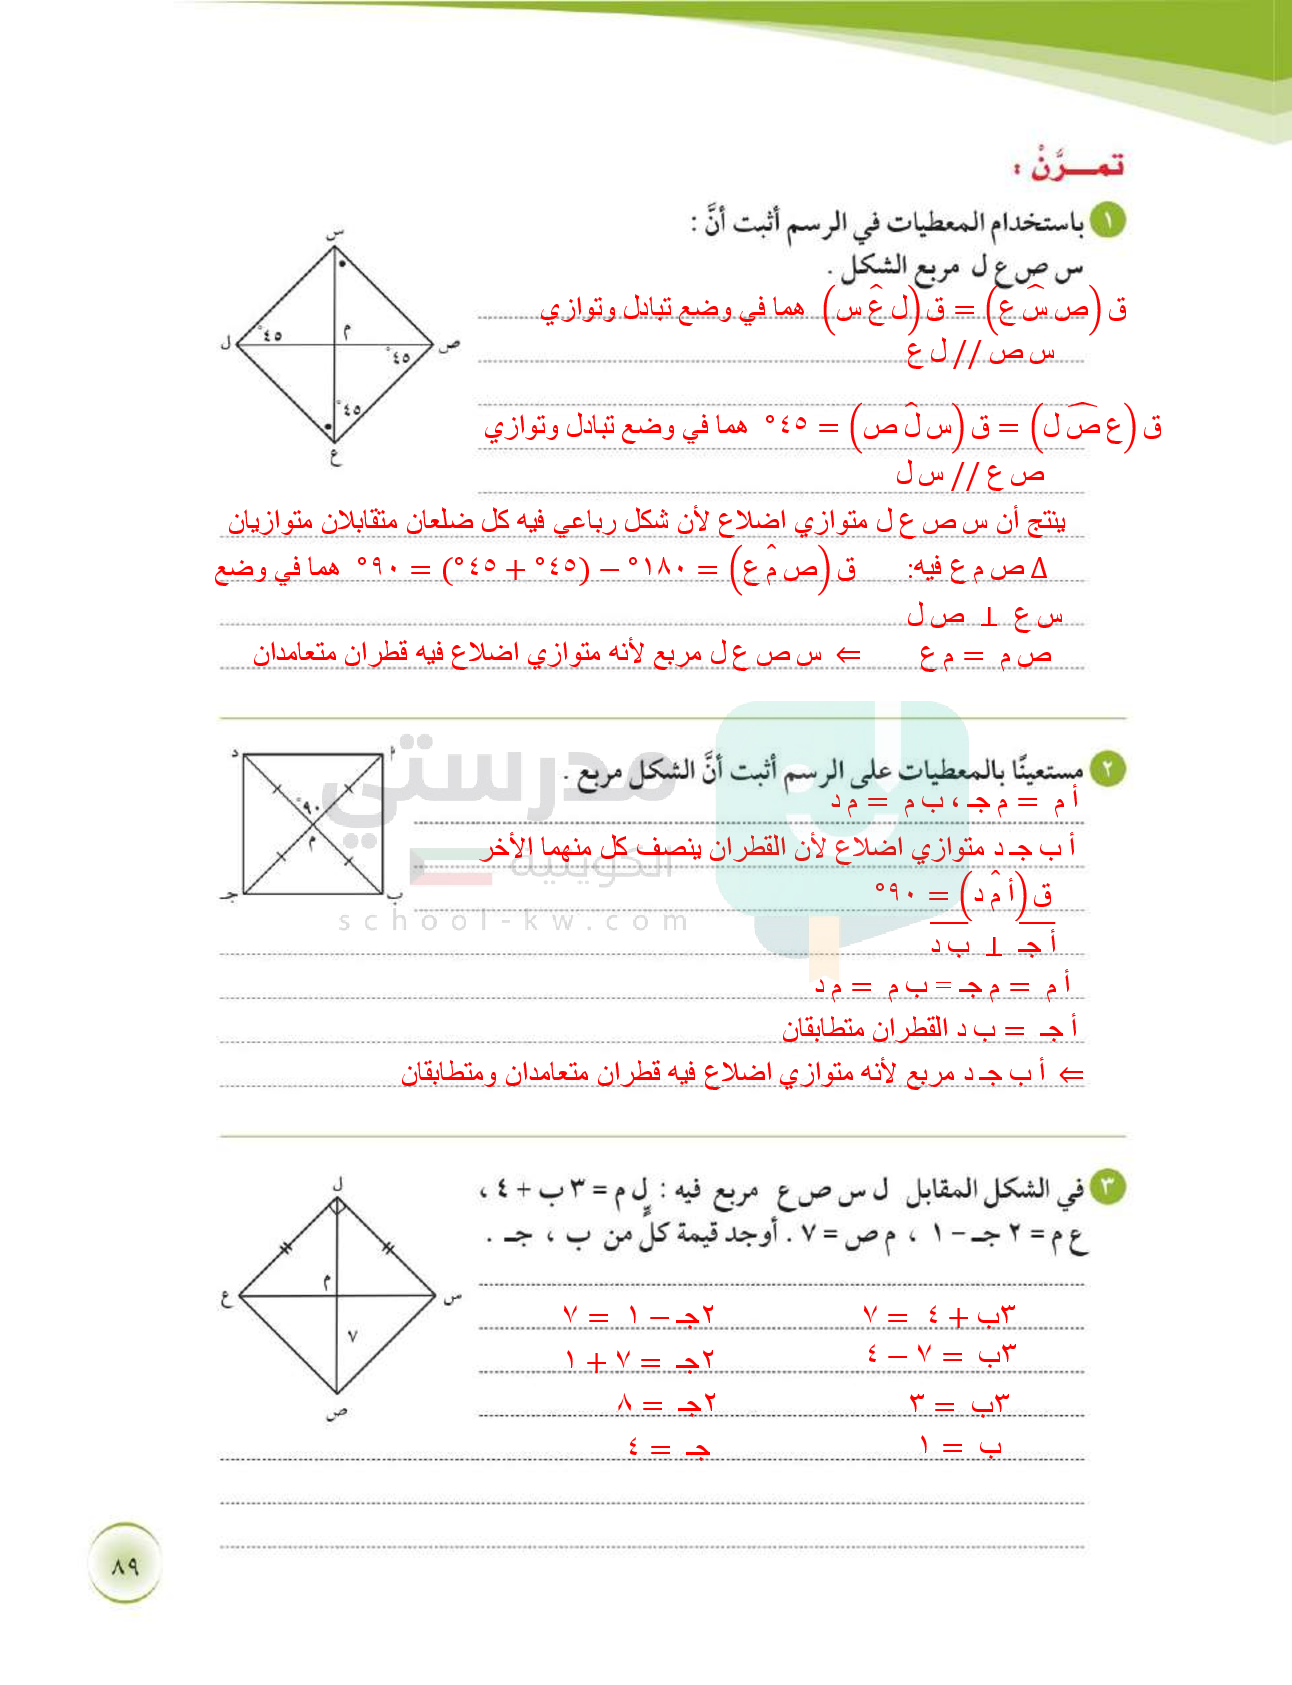 تمـــرَّنْ :
١ باستخدام المعطيات في الرسم أثبت أنَّ :
س ص ع ل مربع الشكل .
س
ل
٤٥°
م
٤٥°
ص
٤٥°
ع
ق (ص س̂ ع) = ق (ل ع̂ س) هما في وضع تبادل وتوازي
س ص // ل ع
ق (ع ص̂ ل) = ق (س ل̂ ص) = ٤٥° هما في وضع تبادل وتوازي
ص ع // س ل
ينتج أن س ص ع ل متوازي اضلاع لأن شكل رباعي فيه كل ضلعان متقابلان متوازيان
Δ ص م ع فيه: ق (ص م̂ ع) = ١٨٠° − (٤٥° + ٤٥°) = ٩٠° هما في وضع
س ع ⊥ ص ل
ص م = م ع ⇐ س ص ع ل مربع لأنه متوازي اضلاع فيه قطران متعامدان
٢ مستعينًا بالمعطيات على الرسم أثبت أنَّ الشكل مربع .
د
أ
٩٠°
م
جـ
ب
أ م = م جـ ، ب م = م د
أ ب جـ د متوازي اضلاع لأن القطران ينصف كل منهما الأخر
ق (أ م̂ د) = ٩٠°
أ جـ ⊥ ب د
أ م = م جـ = ب م = م د
أ جـ = ب د القطران متطابقان
⇐ أ ب جـ د مربع لأنه متوازي اضلاع فيه قطران متعامدان ومتطابقان
مدرستي
الكويتية
school-kw.com
٣ في الشكل المقابل ل س ص ع مربع فيه : ل م = ٣ ب + ٤ ،
ع م = ٢ جـ − ١ ، م ص = ٧ . أوجد قيمة كلٍّ من ب ، جـ .
ل
ع
م
س
٧
ص
٣ب + ٤ = ٧ ٢جـ − ١ = ٧
٣ب = ٧ − ٤ ٢جـ = ٧ + ١
٣ب = ٣ ٢جـ = ٨
ب = ١ جـ = ٤
٨٩